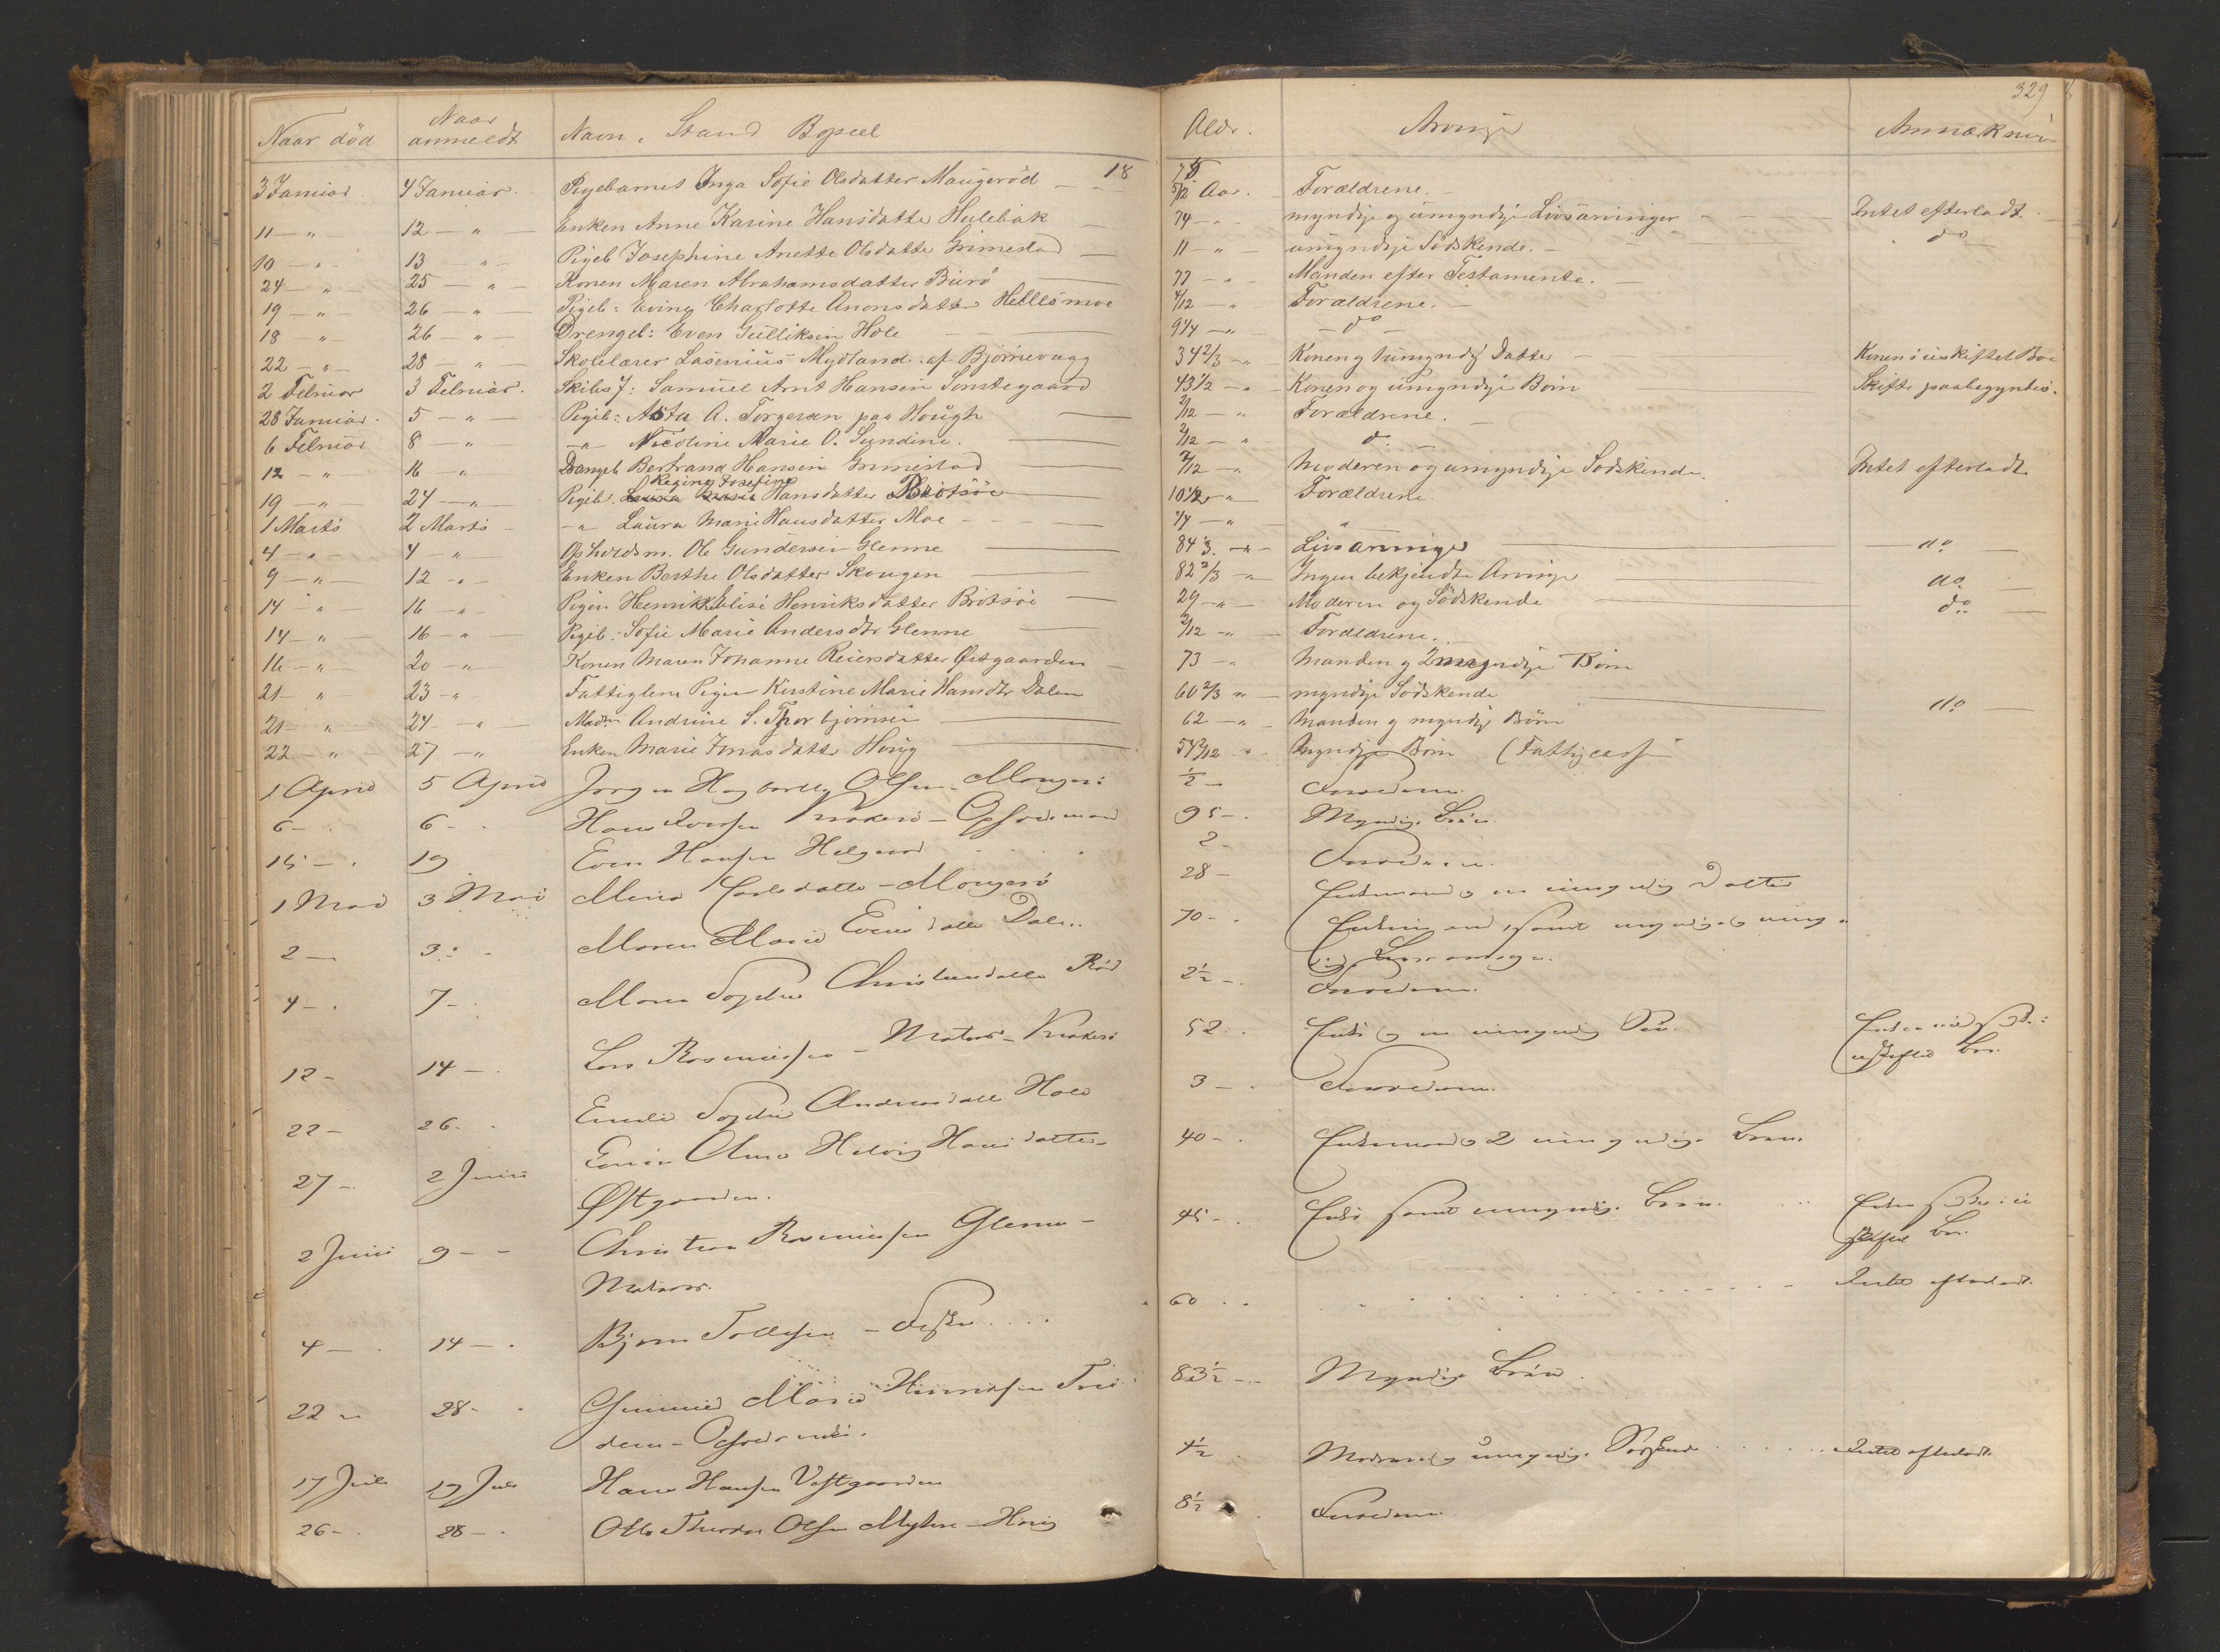 329
Naar död Naar anmeldt Navn, Stand Bopæl Aldr. Arvinger Anmærkning
18 75
3 Januar 4 Januar Pigebarnet Inga Sofie Olsdatter Maugerød 5/12 Aar. Forældrene.
11 — " 12 — " — Enken Anne Karine Hansdatter Hulebak 74 — " myndige og umyndige Livsarvinger Intet efterladt
10 — " 13 — " — Pigeb Josephine Anette Olsdatter Grimestad 11 — " umyndige Södskende. do
24 — " 25 — " — Konen Maren Abrahamsdatter Burö 77 — " Manden efter Testamente.
19 — " — 26 — " — Pigeb: Eving Charlotte Anonsdatter Hellesmoe 4/12 — " Forældrene.
18 — " 26 — " — Drengeb: Even Gulliksen Hole 9 1/4 — " — do —
22 — " — 28 — " Skolelærer Lasenius Mydland af Bjørnevaag 34 2/3 — " Konen og 1 umyndig Datter Konen i uskiftet Bo
2 Februar 3 Februar. Skibsf: Samuel Arnt Hansen Sonstegaard 43 1/2 — " Konen og umyndige Börn Skifte paabegyndes.
28 Januar. 5 — " — Pigeb: Asta A. Torgersen paa Hough 2/12 — " Forældrene.
6 Februar 8 — " — " Nicoline Marie O. Sundene. 2/12 — " do
12 — " 16 — " Drengeb Bertrand Hansen Grimestad 2/12 — " Moderen og umyndige Sødskende. Intet efterladt
Regine Josefine
19 — " 24 — " Pigeb. Laura Marie Hansdatter Brötsöe 10 1/2 — " Forældrene
1 Marts 2 Marts — " Laura Marie Hansdatter Moe 1/4 — " "
4 — " — 4 — " Opholdsm. Ole Gundersen Glenne 84 1/3. — " Livsarvinger do
9 — " — 12 — " — Enken Berthe Olsdatter Skougen 82 2/3 — " Ingen bekjendte Arvinger do
14 — " — 16 — " — Pigen Henrikke Elise Henriksdatter Brötsöe 29 — " Moderen og Södskende do
14 — " — 16 — " — Pigeb: Sofie Marie Andersdtr Glenne 2/12 — " Forældrene.
16 — " — 20 — " Konen Maren Johanne Reiersdatter Østgaarden 73 — " Manden og 2 myndige Börn
21 — " 23 — " Fattiglem Pigen Kirstine Marie Hansdtr Dalen 60 2/3 " myndige Södskende
21 — " 24 — " — Madm Andrine S. Thorbjörnsen 62 — " Manden og myndige Börn do
22 — " 27 — " Enken Marie Jonasdatter Houg 54 2/12 " Myndige Börn (Fattigcasse
1 April 5 April Jörgen Hagbarth Olsen — Maugerö 1/2 — Forældrene.
6 — . 6 — . Hans Iversen Krøkerö — Opholdsmand 95 — . Myndige Börn
15 — . 19 Even Hansen Helgerød 2 — Forældrene.
1 Mai 3 Mai Maria Carlsdatter — Maugerö 28 — Enkemand og en umyndig Datter
2 — 3 : . Maren Marie Evensdatter Dalen. 70 — . Enkemand, samt myndige og umyn-
dige Livsarvinger.
4 — . 7 — . Maren Sophie Christensdatter Röd 2 1/2 — . Forældrene.
12 — 14 — . Lars Rasmussen — Matros — Krøkerö 52 . . Enke og en umyndig Sön. Enken i
uskiftet Bo.
22 — 26. . Emilie Sophie Andreasdatter Hole 3 — . Forældrene.
27 — . 2 Juni Emma Olava Helvig Hansdatter 40 — . Enkemand og 2 umyndige Börn.
Østgaarden.
2 Juni 9 — — Christian Rasmussen Glenne — 45 — . Enke samt umyndige Börn. Enken sidder i u
Matros. skiftet Bo.
4 — . 14 — . Bjørn Tollefsen — Fisker 60 . . Intet efterladt.
22 — 28 — . Gunnild Marie 83 1/2 — Myndige Börn.
17 Juli 19 Juli Hans Hansen Vestgaarden 4 1/2 . Moderen og umyndige Södskende Intet efterladt.
26 — . 28 — . Otto Theodor Olsen Myhre — Houg 8 1/2 . Forældrene.